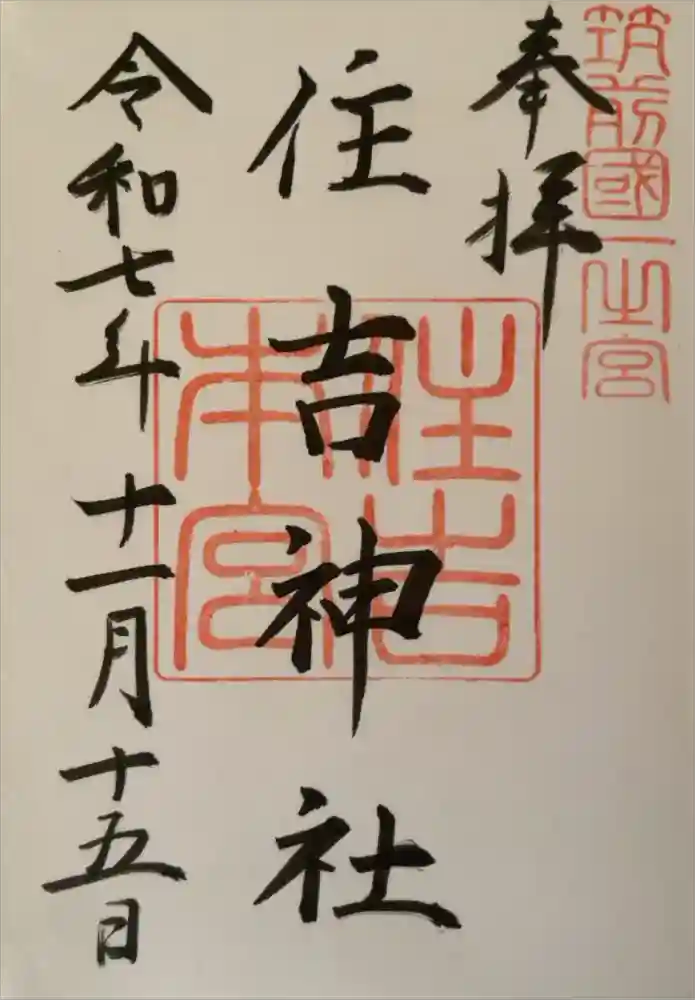 筑前國一之宮
奉拝
住吉神社
住吉本宮
令和七年十一月十五日